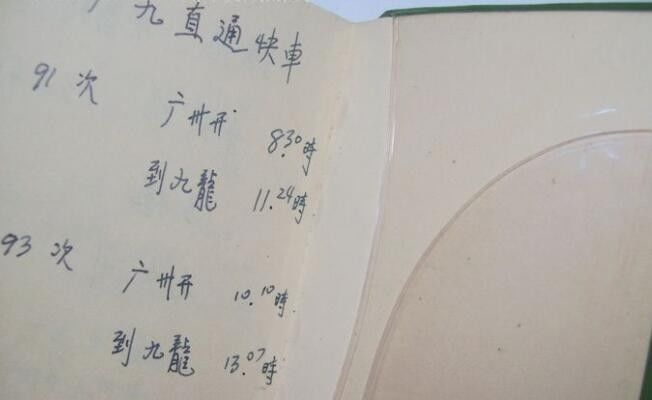 广九直通快車
91次 广州开 8.30時
到九龍 11.24時
93次 广州开 10.10時
到九龍 13.07時